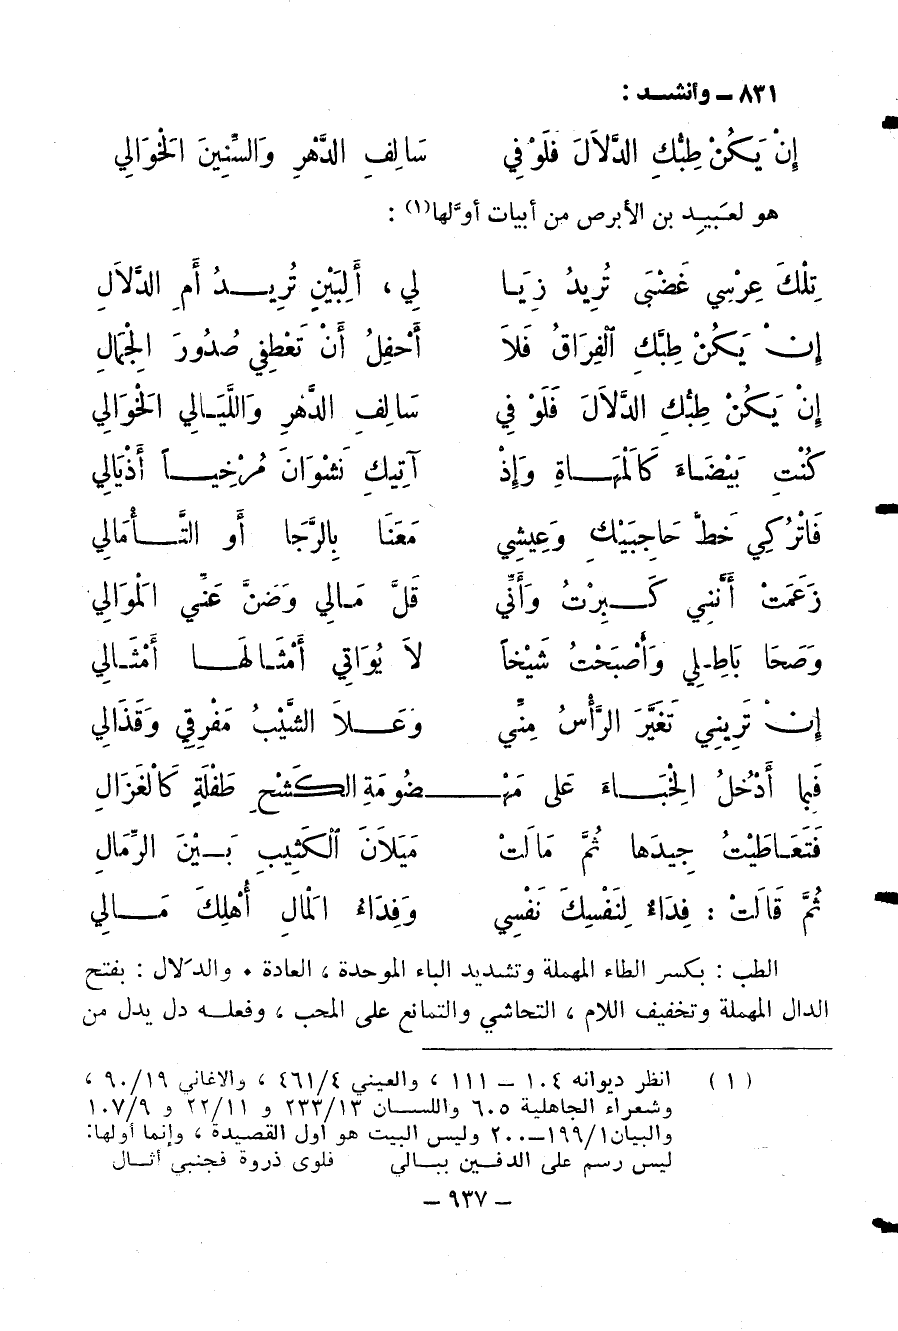 ٨٣١ ــ وأنشــد :
إِنْ يَكُنْ طِبُّكِ الدَّلاَلَ فَلَوْ في سَالِفِ الدَّهْرِ وَالسِّنِينَ الْخَوَالِي
هو لعَبيد بن الأبرص من أبيات أوَّلها(١) :
تِلْكَ عِرْسِي غَضْبَى تُرِيدُ زِيَا لِي ، أَلِبَيْنٍ تُرِيــدُ أَمِ الدَّلاَلِ
إِنْ يَكُنْ طِبُّكِ الْفِرَاقُ فَلاَ أَحْفِلُ أَنْ تَعْطِفِي صُدُورَ الْجِمَالِ
إِنْ يَكُنْ طِبُّكِ الدَّلاَلَ فَلَوْ فِي سَالِفِ الدَّهْرِ وَاللَّيَـالِي الْخَوَالِي
كُنْتِ بَيْضَـاءَ كَالْمَهَـاةِ وَإِذْ آتِيكِ نَشْوَانَ مُرْخِيــاً أَذْيَالِي
فَاتْرُكِي خَطَّ حَاجِبَيْكِ وَعِيشِي مَعَنَا بِالرَّجَا أَو التَّــأْمَالِي
زَعَمَتْ أَنَّنِي كَــبِرْتُ وَأَنِّي قَلَّ مَـالِي وَضَنَّ عَنِّي الْمَوَالِي
وَصَحَا بَاطِـلِي وَأَصْبَحْتُ شَيْخاً لاَ يُوَاتِي أَمْثَـالَهَــا أَمْثَـالِي
إِنْ تَرِيْنِي تَغَيَّرَ الرَّأْسُ مِنِّي وَعَــلاَ الشَّيْبُ مَفْرِقِي وَقَذَالِي
فَبِمَا أَدْخُلُ الْخِبَــاءَ عَلَى مَهْــضُومَةِ الكَشْحِ طَفْلَةٍ كَالْغَزَالِ
فَتَعَـاطَيْتُ جِيدَها ثُمَّ مَالَتْ مَيَلاَنَ الْكَثِيبِ بَــيْنَ الرِّمَالِ
ثُمَّ قَالَتْ : فِدَاءٌ لِنَفْسِكَ نَفْسِي وَفِدَاءٌ لِمَالِ أَهْلِكَ مَــالِي
الطب : بكسر الطاء المهملة وتشديد الباء الموحدة ، العادة • والدَّلال : بفتح
الدال المهملة وتخفيف اللام ، التحاشي والتمانع على المحب ، وفعلــه دل يدل من
( ١ ) انظر ديوانه ١٠٤ – ١١١ ، والعيني ٤٦١/٤ ، والاغاني ٩٠/١٩ ،
وشعراء الجاهلية ٦٠٥ واللســان ٢٣٣/١٣ و ٢٢/١١ و ١٠٧/٩
والبيان١٩٩/١–٢٠٠ وليس البيت هو اول القصيدة ، وإنما أولها:
ليس رسم على الدفــين ببــالي فلوى ذروة فجنبي أثــال
– ٩٣٧ –